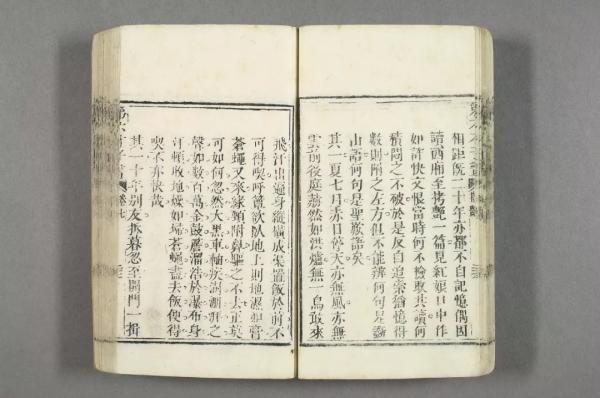 相距既二十年亦都不自記憶偶因
讀西廂至拷艷一篇見紅娘口中作
如許快文恨當時何不檢取共讀何
積悶之不破於是反自追索猶憶得
數則附之左方但不能辨何句是斲
山語何句是聖歎語矣
其一夏七月赤日停天亦無風亦無
雲前後庭赫然如洪爐無一鳥敢來
飛汗出遍身縱橫成渠置飯於前不
可得喫呼簟欲臥地上則地濕如膏
蒼蠅又來緣頸附鼻驅之不去正莫
可如何忽然大黑車軸疾澍澎湃之
聲如數百萬金鼓簷溜浩於瀑布身
汗頓收地燥如掃蒼蠅盡去飯便得
喫不亦快哉
其一十年別友抵暮忽至開門一揖